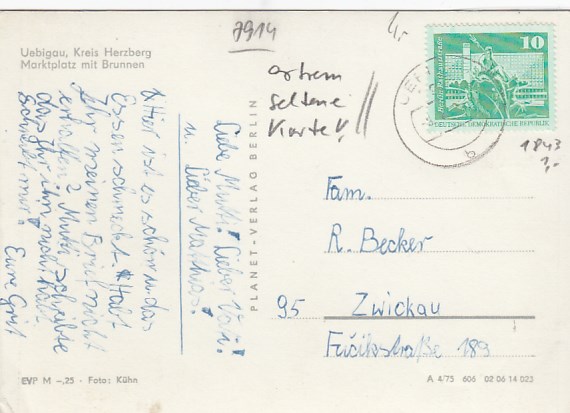 7914
Uebigau, Kreis Herzberg
Marktplatz mit Brunnen
extrem
seltene
Karte!
10
DEUTSCHE DEMOKRATISCHE REPUBLIK
1843
PLANET-VERLAG BERLIN
Liebe Mutti! Lieber Vati!
u. lieber Matthias!
Hier ist es schön u. das
Essen schmeckt. Habt
Ihr meinen Brief nicht
erhalten? Mutti schreibte
das Ihr ihn nicht habt.
Schreibt mir! Eure Grit
Fam.
R. Becker
95 Zwickau
Fučikstraße 189
EVP M –,25 · Foto: Kühn
A 4/75 606 02 06 14 023